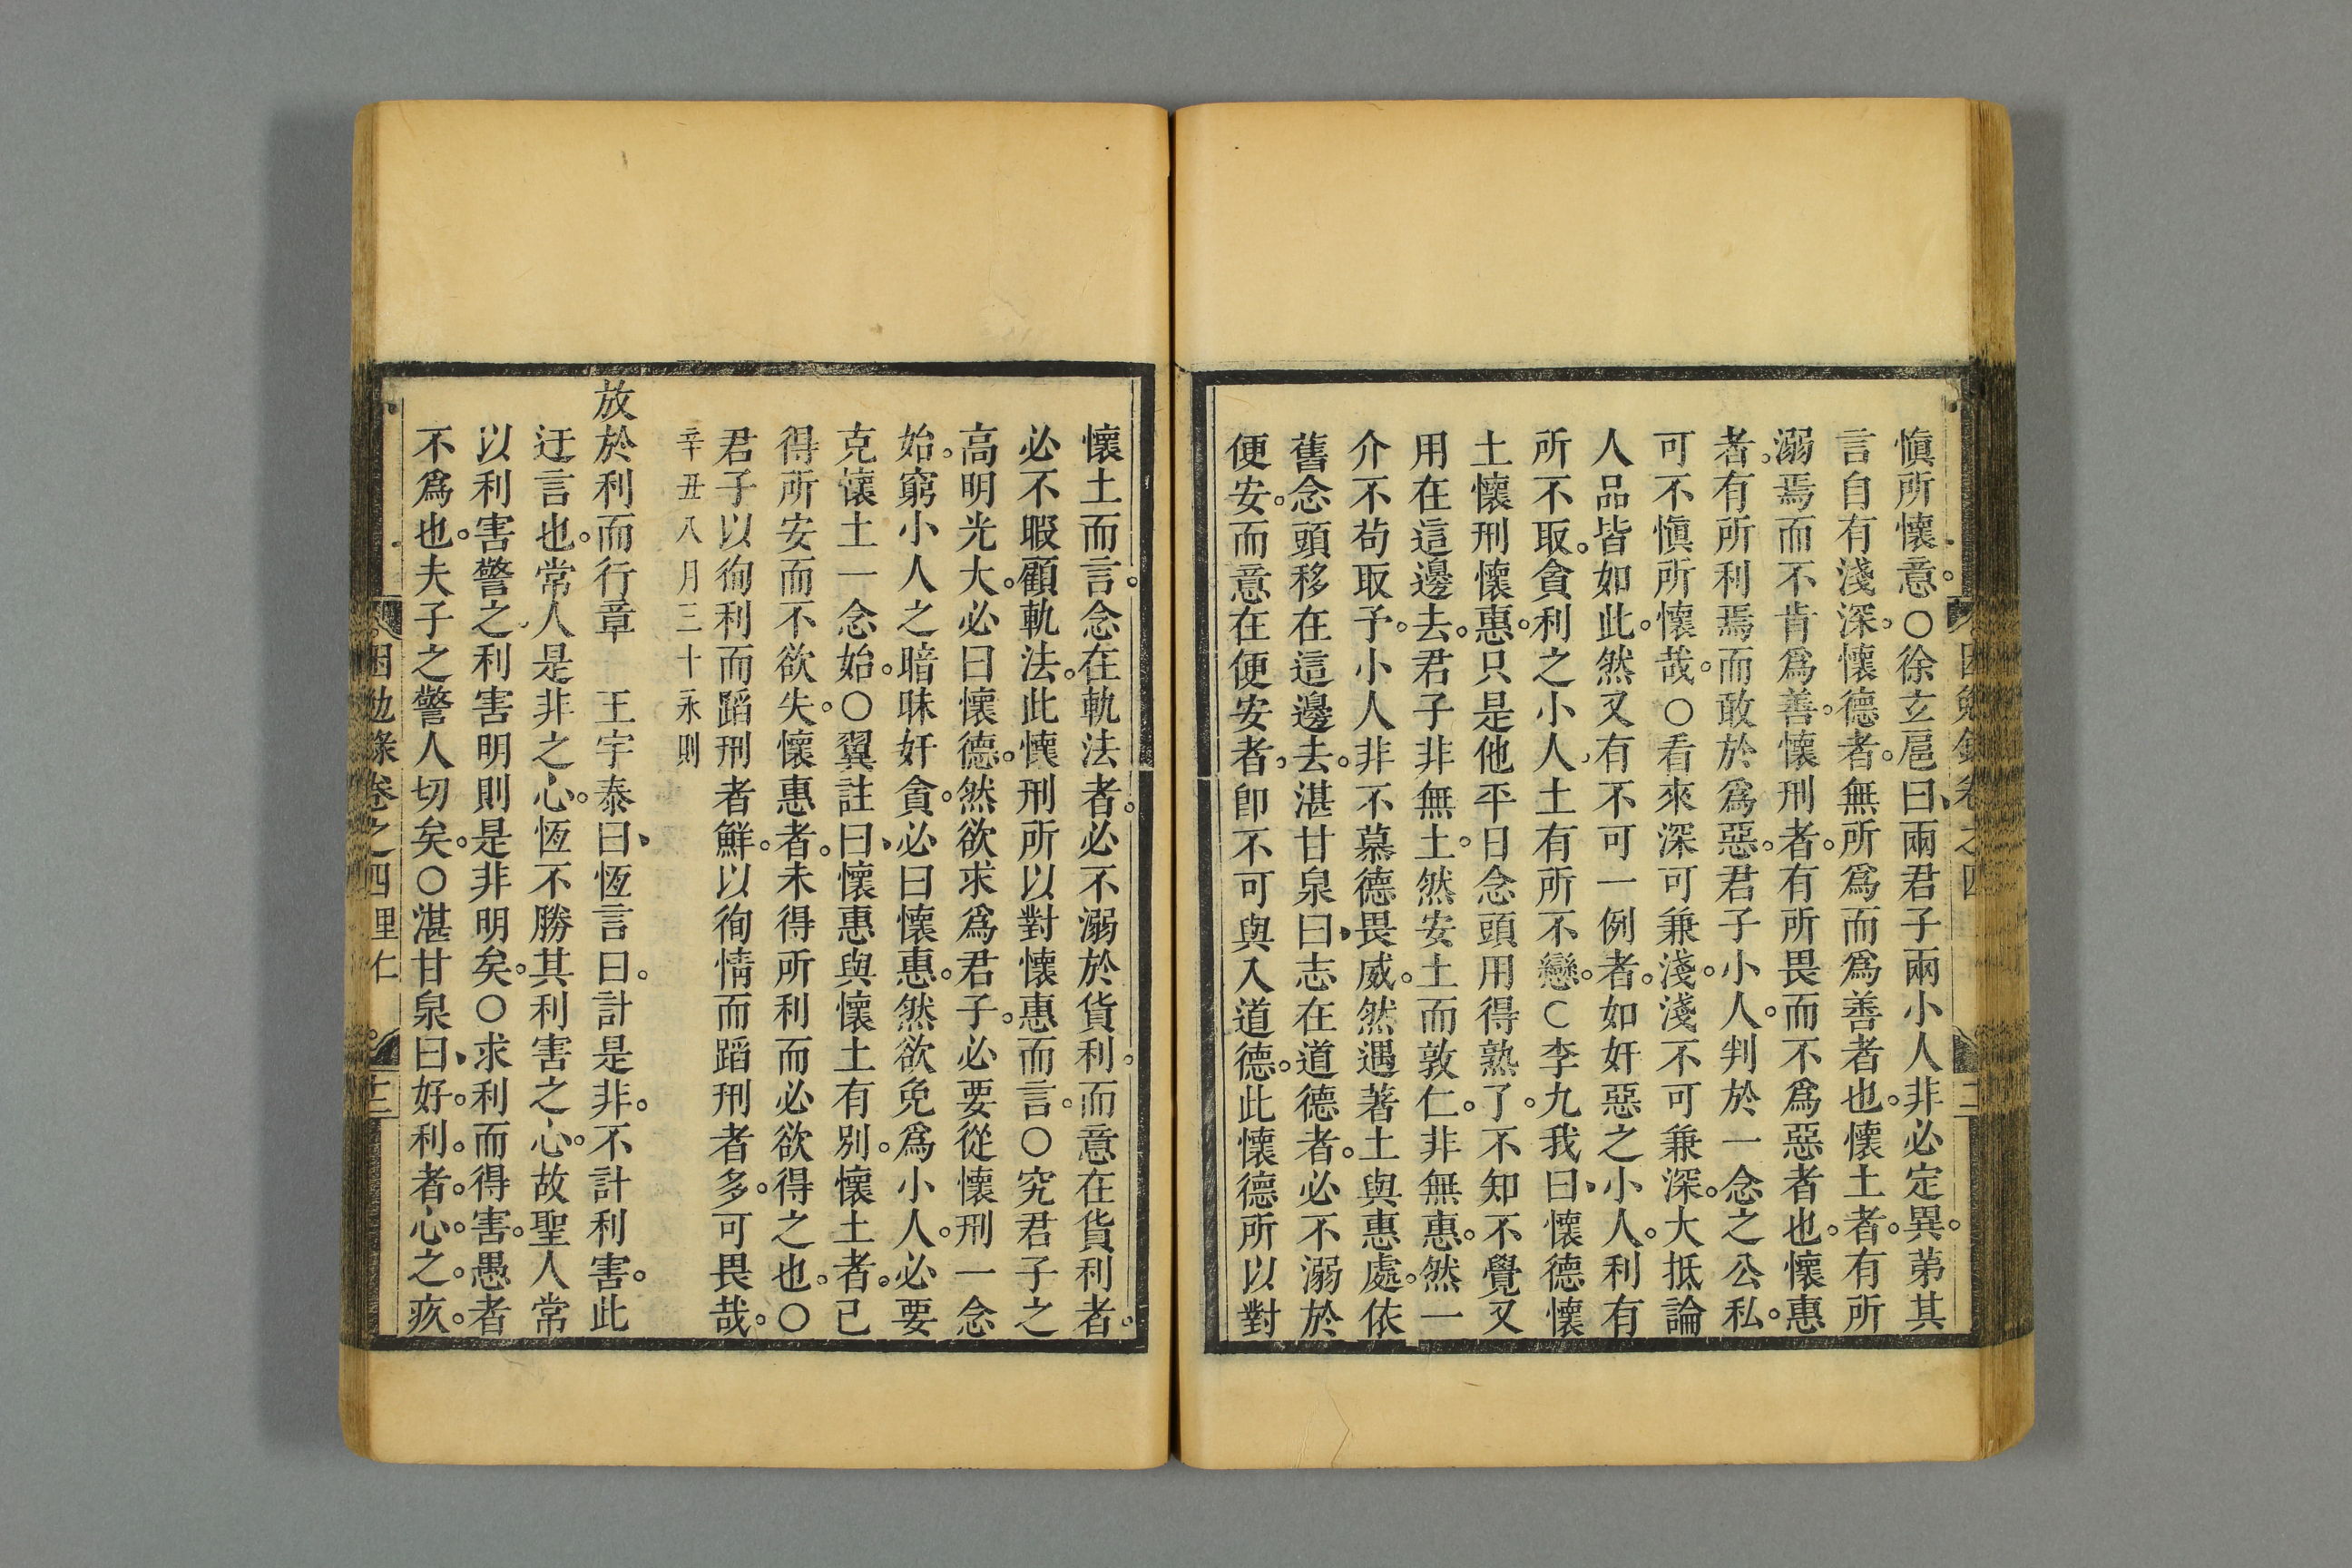 愼所懷意。○徐玄扈曰、兩君子兩小人非必定異。苐其
言自有淺深、懷德者。無所爲而爲善者也。懷土者。有所
溺焉而不肯爲善。懷刑者。有所畏而不爲惡者也。懷惠
者。有所利焉而敢於爲惡。君子小人。判於一念之公私。
可不愼所懷哉。○看來深可兼淺。淺不可兼深。大抵論
人品皆如此。然又有不可一例者。如奸惡之小人。利有
所不取。貪利之小人、土有所不戀。○李九我曰、懷德懷
土懷刑懷惠。只是他平日念頭用得熟了。不知不覺又
用在這邊去。君子非無土。然安土而敦仁。非無惠。然一
介不苟取予。小人非不慕德畏威。然遇著土與惠處。依
舊念頭移在這邊去。湛甘泉曰、志在道德者。必不溺於
便安。而意在便安者、卽不可與入道德。此懷德所以對
懷土而言。念在軌法者。必不溺於貨利。而意在貨利者。
必不暇顧軌法。此懷刑所以對懷惠而言。○究君子之
高明光大。必曰懷德。然欲求爲君子。必要從懷刑一念
始。窮小人之暗昧奸貪。必曰懷惠。然欲免爲小人。必要
克懷土一念始。○翼註曰、懷惠與懷土有別。懷土者。已
得所安而不欲失。懷惠者。未得所利而必欲得之也。○
君子以徇利而蹈刑者鮮。以徇情而蹈刑者多。可畏哉。
辛丑八月三十永則
放於利而行章　王宇泰曰、恆言曰。計是非。不計利害。此
迂言也。常人是非之心。恆不勝其利害之心。故聖人常
以利害警之、利害明則是非明矣。○求利而得害。愚者
不爲也。夫子之警人切矣。○湛甘泉曰、好。利。者。心。之。疚。
困勉錄卷之四 里仁 十二